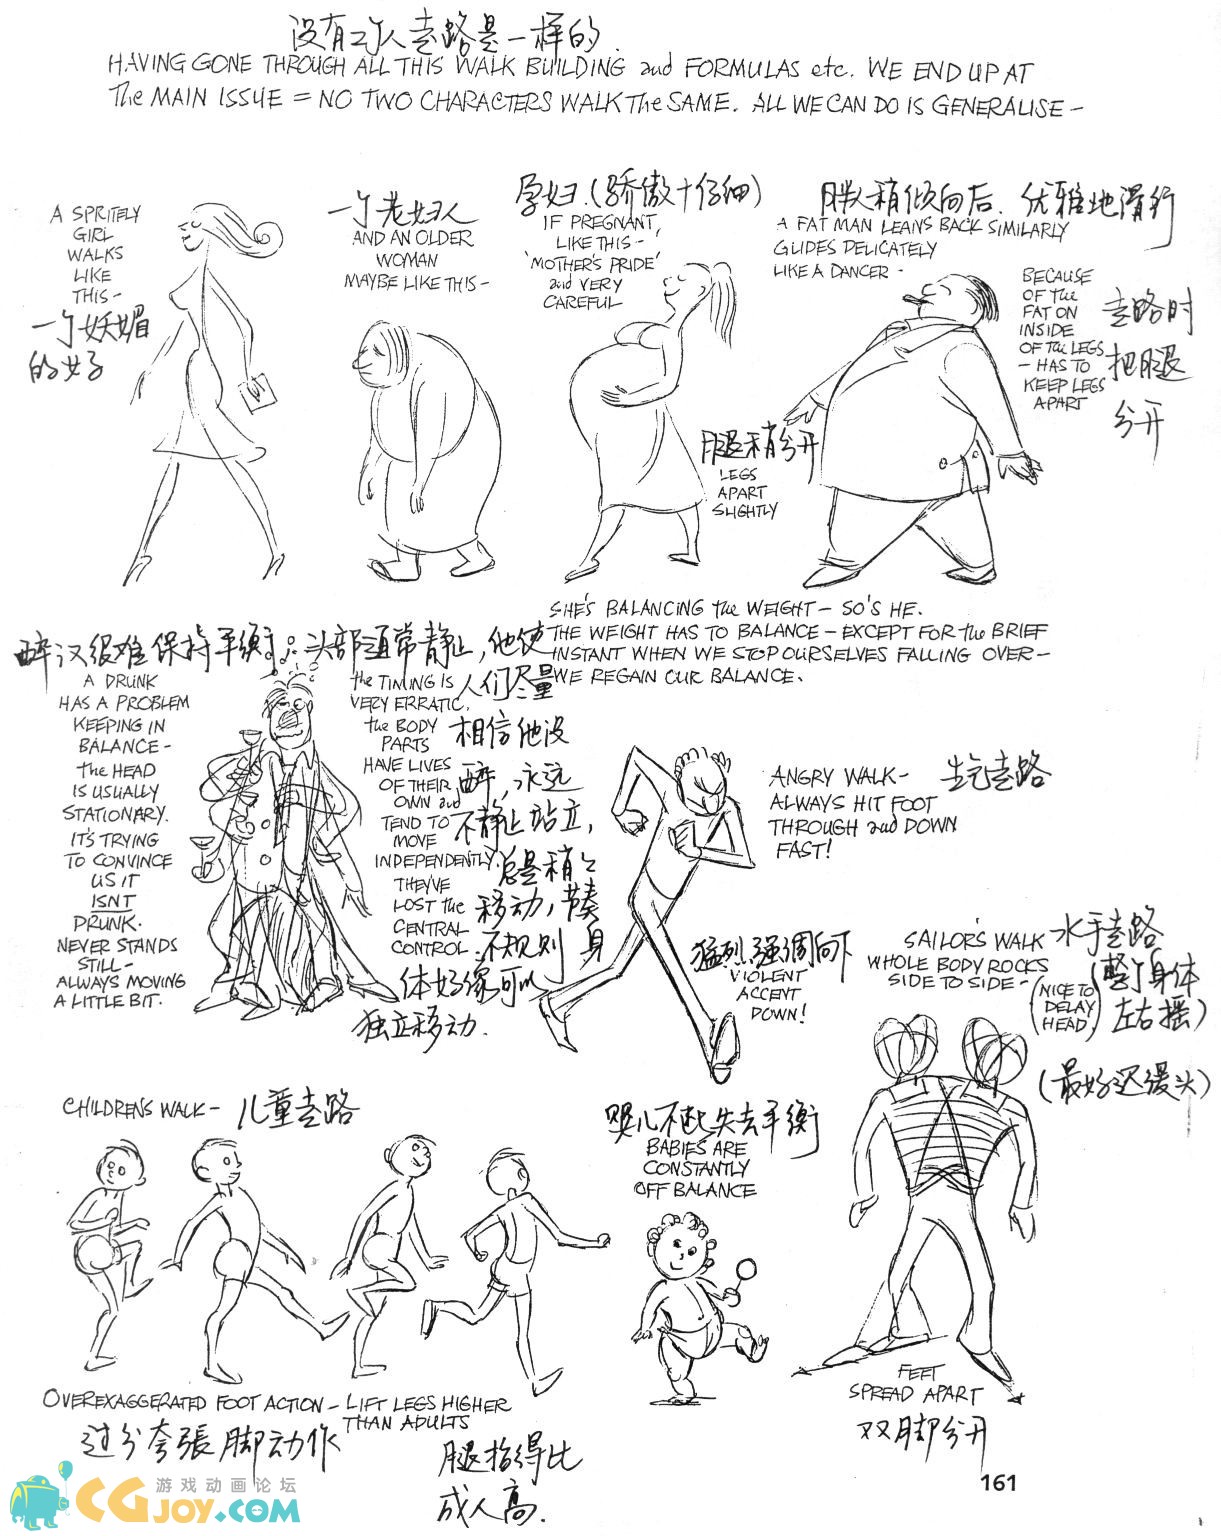 没有2个人走路是一样的.
HAVING GONE THROUGH ALL THIS WALK BUILDING and FORMULAS etc. WE END UP AT
The MAIN ISSUE = NO TWO CHARACTERS WALK The SAME. ALL WE CAN DO IS GENERALISE -
A SPRITELY
GIRL
WALKS
LIKE
THIS -
一个妖媚
的女子
一个老妇人
AND AN OLDER
WOMAN
MAYBE LIKE THIS -
孕妇.(骄傲+仔细)
IF PREGNANT,
LIKE THIS -
'MOTHER'S PRIDE'
and VERY
CAREFUL
腿稍分开
LEGS
APART
SLIGHTLY
胖人稍倾向后. 优雅地滑行
A FAT MAN LEANS BACK SIMILARLY
GLIDES DELICATELY
LIKE A DANCER -
BECAUSE
OF The
FAT ON
INSIDE
OF The LEGS
- HAS TO
KEEP LEGS
APART
走路时
把腿
分开
SHE'S BALANCING The WEIGHT - SO'S HE.
THE WEIGHT HAS TO BALANCE - EXCEPT FOR The BRIEF
INSTANT WHEN WE STOP OURSELVES FALLING OVER -
WE REGAIN OUR BALANCE.
醉汉很难保持平衡: 头部通常静止, 他使
人们尽量
相信他没
醉, 永远
不静止站立,
总是稍稍
移动, 节奏
不规则 身
体好像可以
独立移动.
A DRUNK
HAS A PROBLEM
KEEPING IN
BALANCE -
The HEAD
IS USUALLY
STATIONARY.
IT'S TRYING
TO CONVINCE
US IT
ISNT
DRUNK.
NEVER STANDS
STILL -
ALWAYS MOVING
A LITTLE BIT.
The TIMING IS
VERY ERRATIC.
The BODY
PARTS
HAVE LIVES
OF THEIR
OWN and
TEND TO
MOVE
INDEPENDENTLY.
THEY'VE
LOST The
CENTRAL
CONTROL.
ANGRY WALK -
ALWAYS HIT FOOT
THROUGH and DOWN
FAST!
生气走路
猛烈强调向下
VIOLENT
ACCENT
DOWN!
SAILOR'S WALK
WHOLE BODY ROCKS
SIDE TO SIDE -
(NICE TO
DELAY
HEAD)
水手走路
(整个身体
左右摇)
(最好迟缓头)
FEET
SPREAD APART
双脚分开
CHILDRENS WALK -
儿童走路
OVEREXAGGERATED FOOT ACTION - LIFT LEGS HIGHER
THAN ADULTS
过分夸張脚动作
腿抬得比
成人高.
BABIES ARE
CONSTANTLY
OFF BALANCE
161
游戏动画论坛
CGJOY.COM